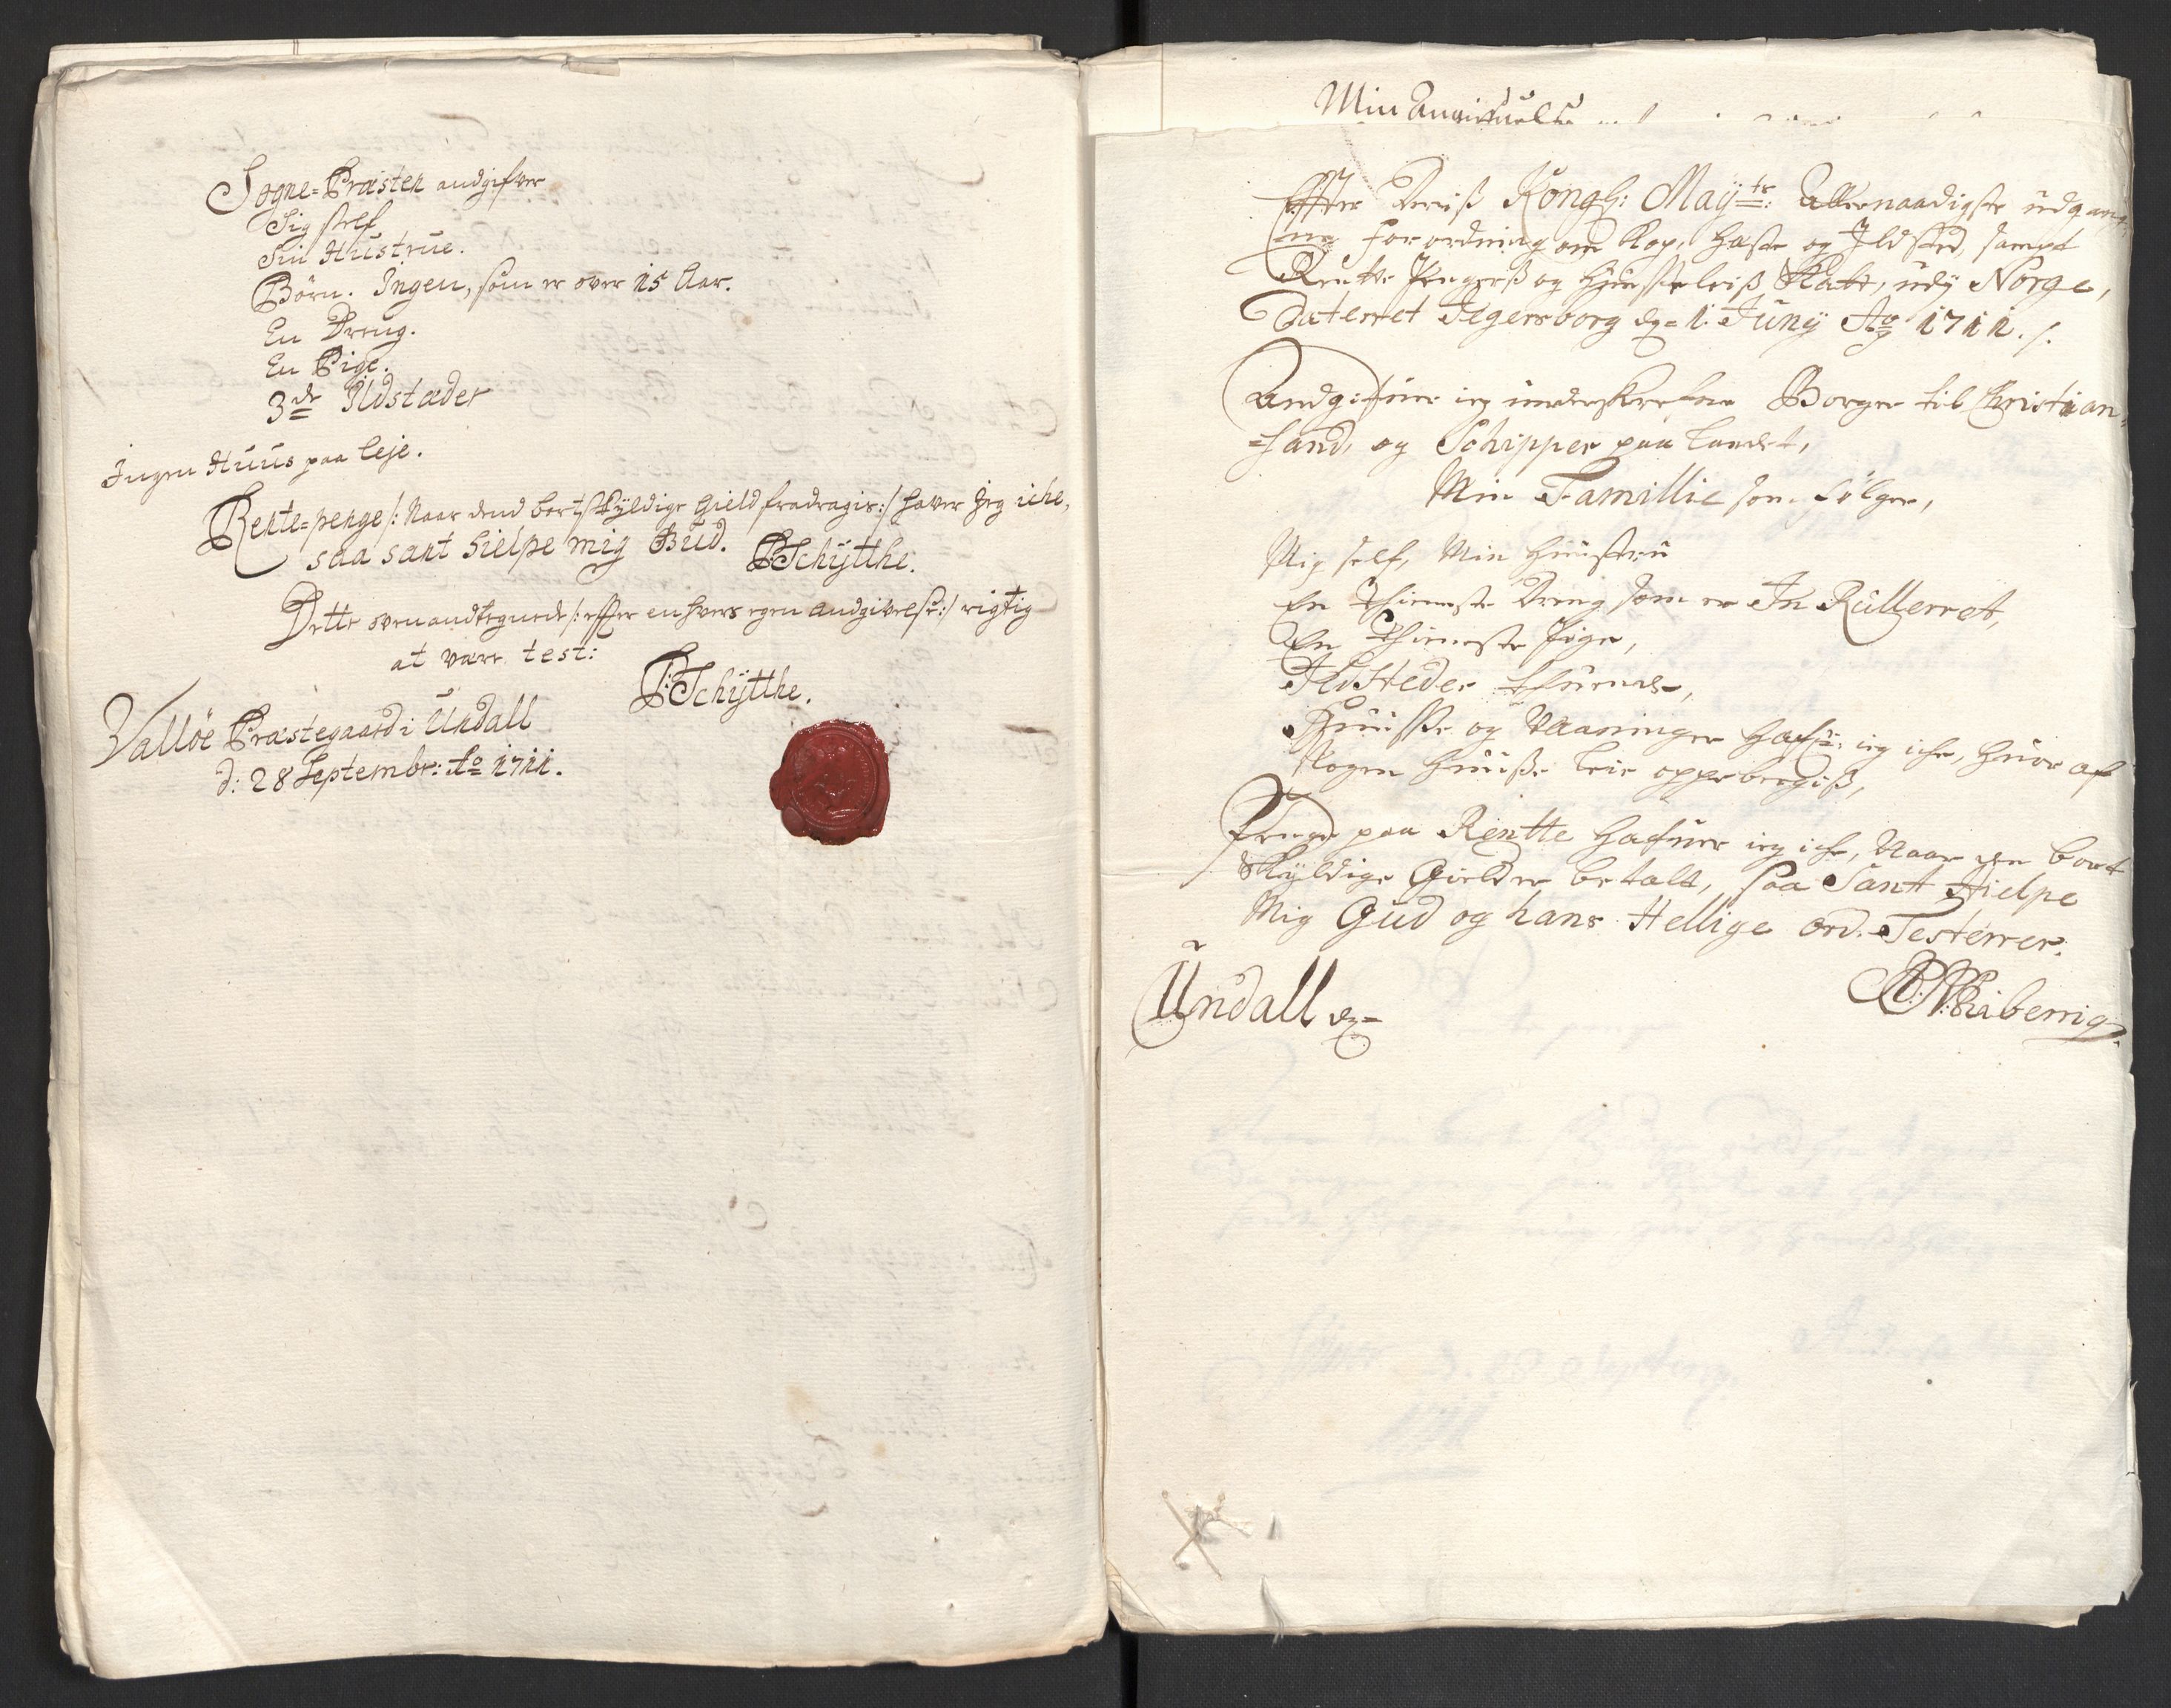 Sogne=Præsten andgifver
Sig sielf
Sin Hustrue.
Börn. Ingen, som er over 15 Aar.
En Dreng.
En Pige.
3de Ildstæder
Ingen Huus paa Leje.
Rente=penge /: Naar dend bortskyldige Gield fradragis :/ haver Jeg iche,
saa sant hielpe mig Gud. P:Schytthe.
Dette ovenandtegnede /: efter enhvers egen andgivelse :/ rigtig
at være test:
P:Schytthe.
Valløe Præstegaard i Undall
d: 28 Septembr: Ao 1711.
Min
Efter Deriß Kongl: Mayts: Allernaadigste udgang
ne forordning om Kop, Heste og Ildsted, sampt
Rente Pengerß og Huusseleiß Skatt, udj Norge,
Daterret Jegersborg de 1 Juny Ao 1711 ./.
Andgifuer ieg underskrefne Borger til Christian
=sand, og Schipper paa Landet,
Min Famillie som fölger,
Mig self, Min Huustru
En Thieneste Dreng som er In Rullerret,
En Thieneste Pige,
Ildsteder
Huusse og Vaaninger hafuer ieg iche, huor af
Nogen Huuße Leie oppebergiß,
Penge paa Rentte hafuer ieg iche, Naar den bort
Skyldige Gield er betalt, saa Sant Hielpe
Mig Gud og hans Hellige ord. Testerrer.
Undall de